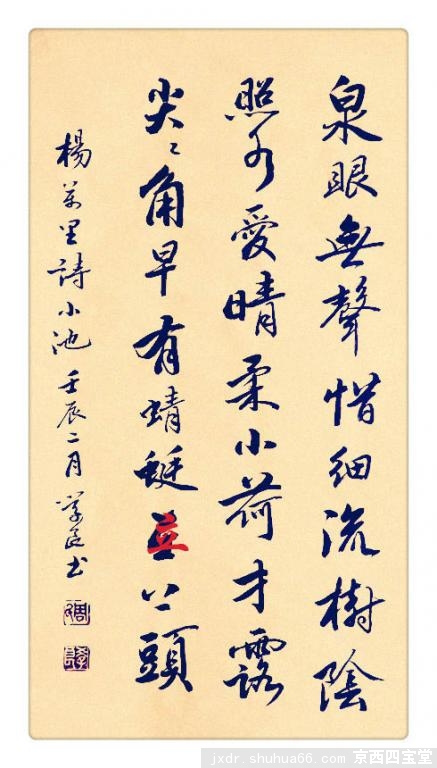 泉眼無聲惜細流樹陰
照水愛晴柔小荷才露
尖々角早有蜻蜓立上頭
楊萬里詩小池 壬辰二月 學书
jxdr.shuhua66.com 京西四宝堂